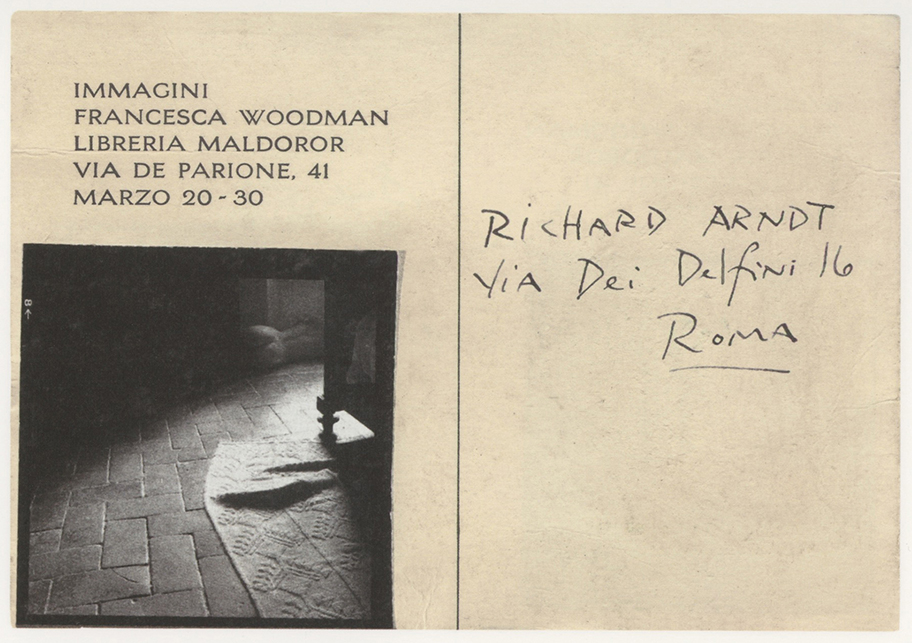 IMMAGINI
FRANCESCA WOODMAN
LIBRERIA MALDOROR
VIA DE PARIONE, 41
MARZO 20-30
8←
RicHARD ARNDT
ViA Dei Delfini 16
RoMA